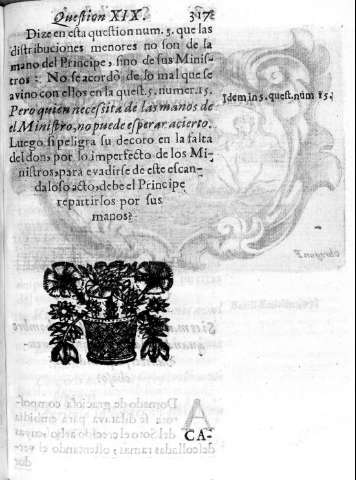 Question XIX. 317
Dize en esta question num. 5. que las
distribuciones menores no son de la
mano del Principe, sino de sus Minis-
tros: No se acordò de lo mal que se
avino con ellos en la quest. 5. numer. 15.
Pero quien necessita de las manos de
el Ministro, no puede esperar acierto.
Luego si peligra su decoro en la falta
del don, por lo imperfecto de los Mi-
nistros, para evadirse de este escan-
daloso acto, debe el Principe
repartirlos por sus
manos?
Idem in 5. quest. num 15.
CA-